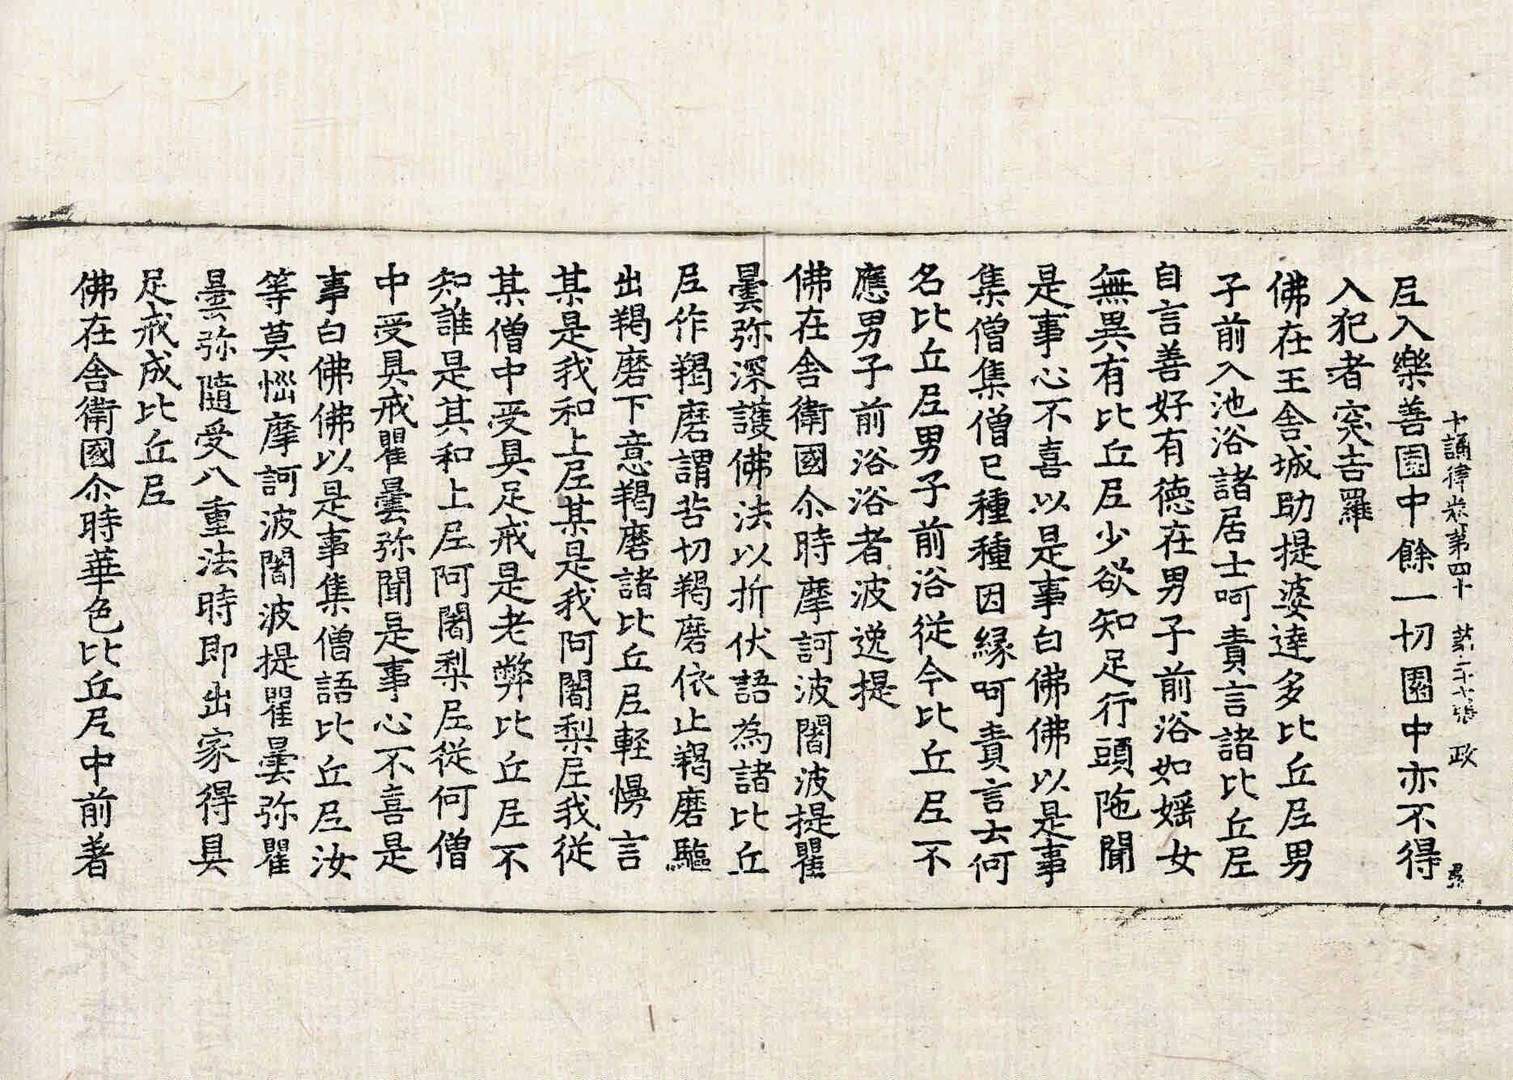 十誦律卷第四十 第二十七張 政
尼入樂善園中餘一切園中亦不得
入犯者突吉羅
佛在王舍城助提婆達多比丘尼男
子前入池浴諸居士呵責言諸比丘尼
自言善好有德在男子前浴如婬女
無異有比丘尼少欲知足行頭陁聞
是事心不喜以是事白佛佛以是事
集僧集僧已種種因緣呵責言云何
名比丘尼男子前浴從今比丘尼不
應男子前浴浴者波逸提
佛在舍衛國尒時摩訶波闍波提瞿
曇弥深護佛法以折伏語為諸比丘
尼作羯磨謂苦切羯磨依止羯磨驅
出羯磨下意羯磨諸比丘尼輕慢言
某是我和上尼某是我阿闍梨尼我從
某僧中受具足戒是老弊比丘尼不
知誰是其和上尼阿闍梨尼從何僧
中受具戒瞿曇弥聞是事心不喜是
事白佛佛以是事集僧語比丘尼汝
等莫惱摩訶波闍波提瞿曇弥瞿
曇弥隨受八重法時即出家得具
足戒成比丘尼
佛在舍衛國尒時華色比丘尼中前著